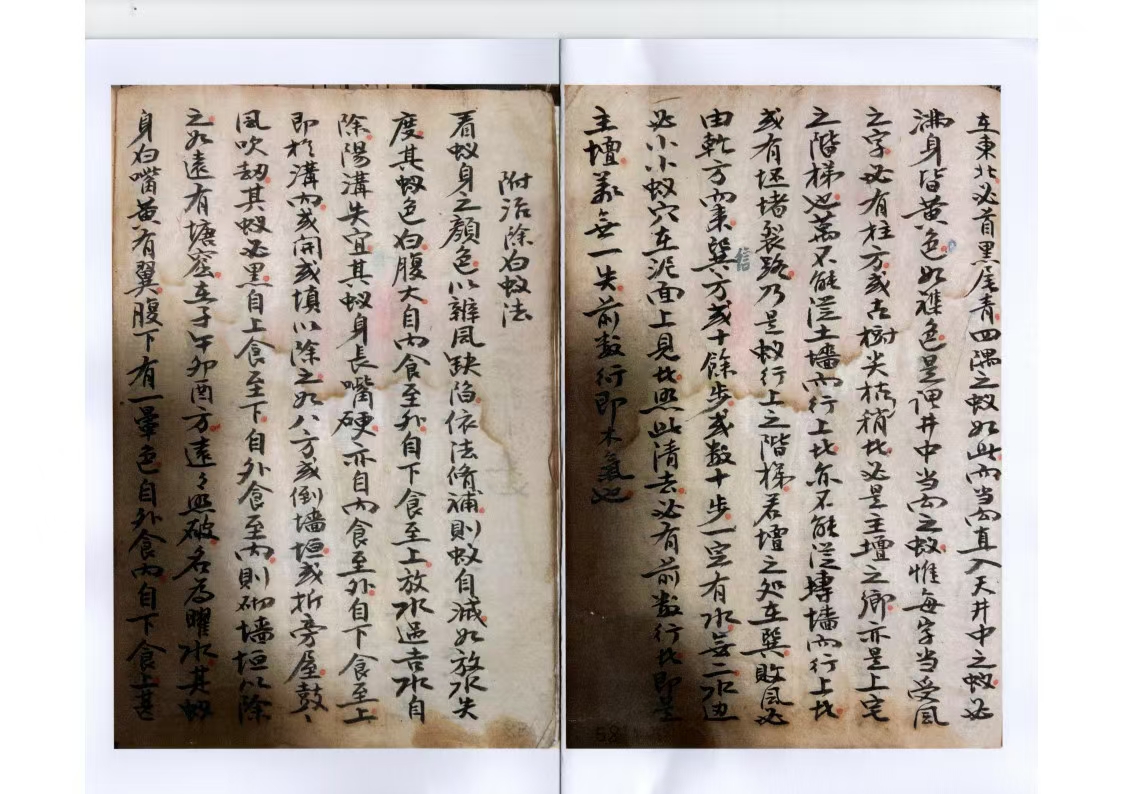 在東北必首黑尾青四隅之蚁如此而当面直入天井中之蚁必
满身皆黄色如雄色是谓井中当面之蚁惟每字当受風
之字必有柱方或古樹尖枯稍比必是主壇之鄉亦是上宅
之階梯也蓋不能從土墙而行上比亦不能從磚墙而行上比
或有坯堵裂路乃是蚁行上之階梯若壇之処在巽敗風必
由乾方而来巽方或十餘步或数十步一定有水無二水边
必小小蚁穴在泥面上見比照此清去必有前数行比即是
主壇萬無一失前数行即木氣也
信
附治除白蚁法
看蚁身之顏色以辨風缺陷依法脩補則蚁自滅如放水失
度其蚁色白腹大自内食至外自下食至上放水過吉水自
除陽溝失宜其蚁身長嘴硬亦自内食至外自下食至上
即於溝内或開或填以除之如八方或倒墙垣或折旁屋鼓鼓
風吹劫其蚁必黑自上食至下自外食至内則砌墙垣以除
之如遠有塘窟在子午卯酉方遠遠照破名為曜水其蚁
身白嘴黄有翼腹下有一暈色自外食内自下食上甚